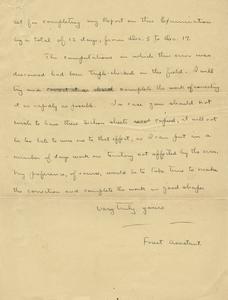 set for completing my Report on this Examination
by a total of 12 days, from Dec. 5 to Dec. 17.
The computations in which this error was
discovered had been triple-checked in the field. I will
try and correct it as should complete the work of correcting
it as rapidly as possible. In case you should not
wish to have these section sheets recopied, it will not
be too late to wire me to that effort, as I can put in a
number of days work on territory not affected by the error.
My preference, of course, would be to take time to make
the correction and complete the work in good shape.
Very truly yours
Forest Assistant.